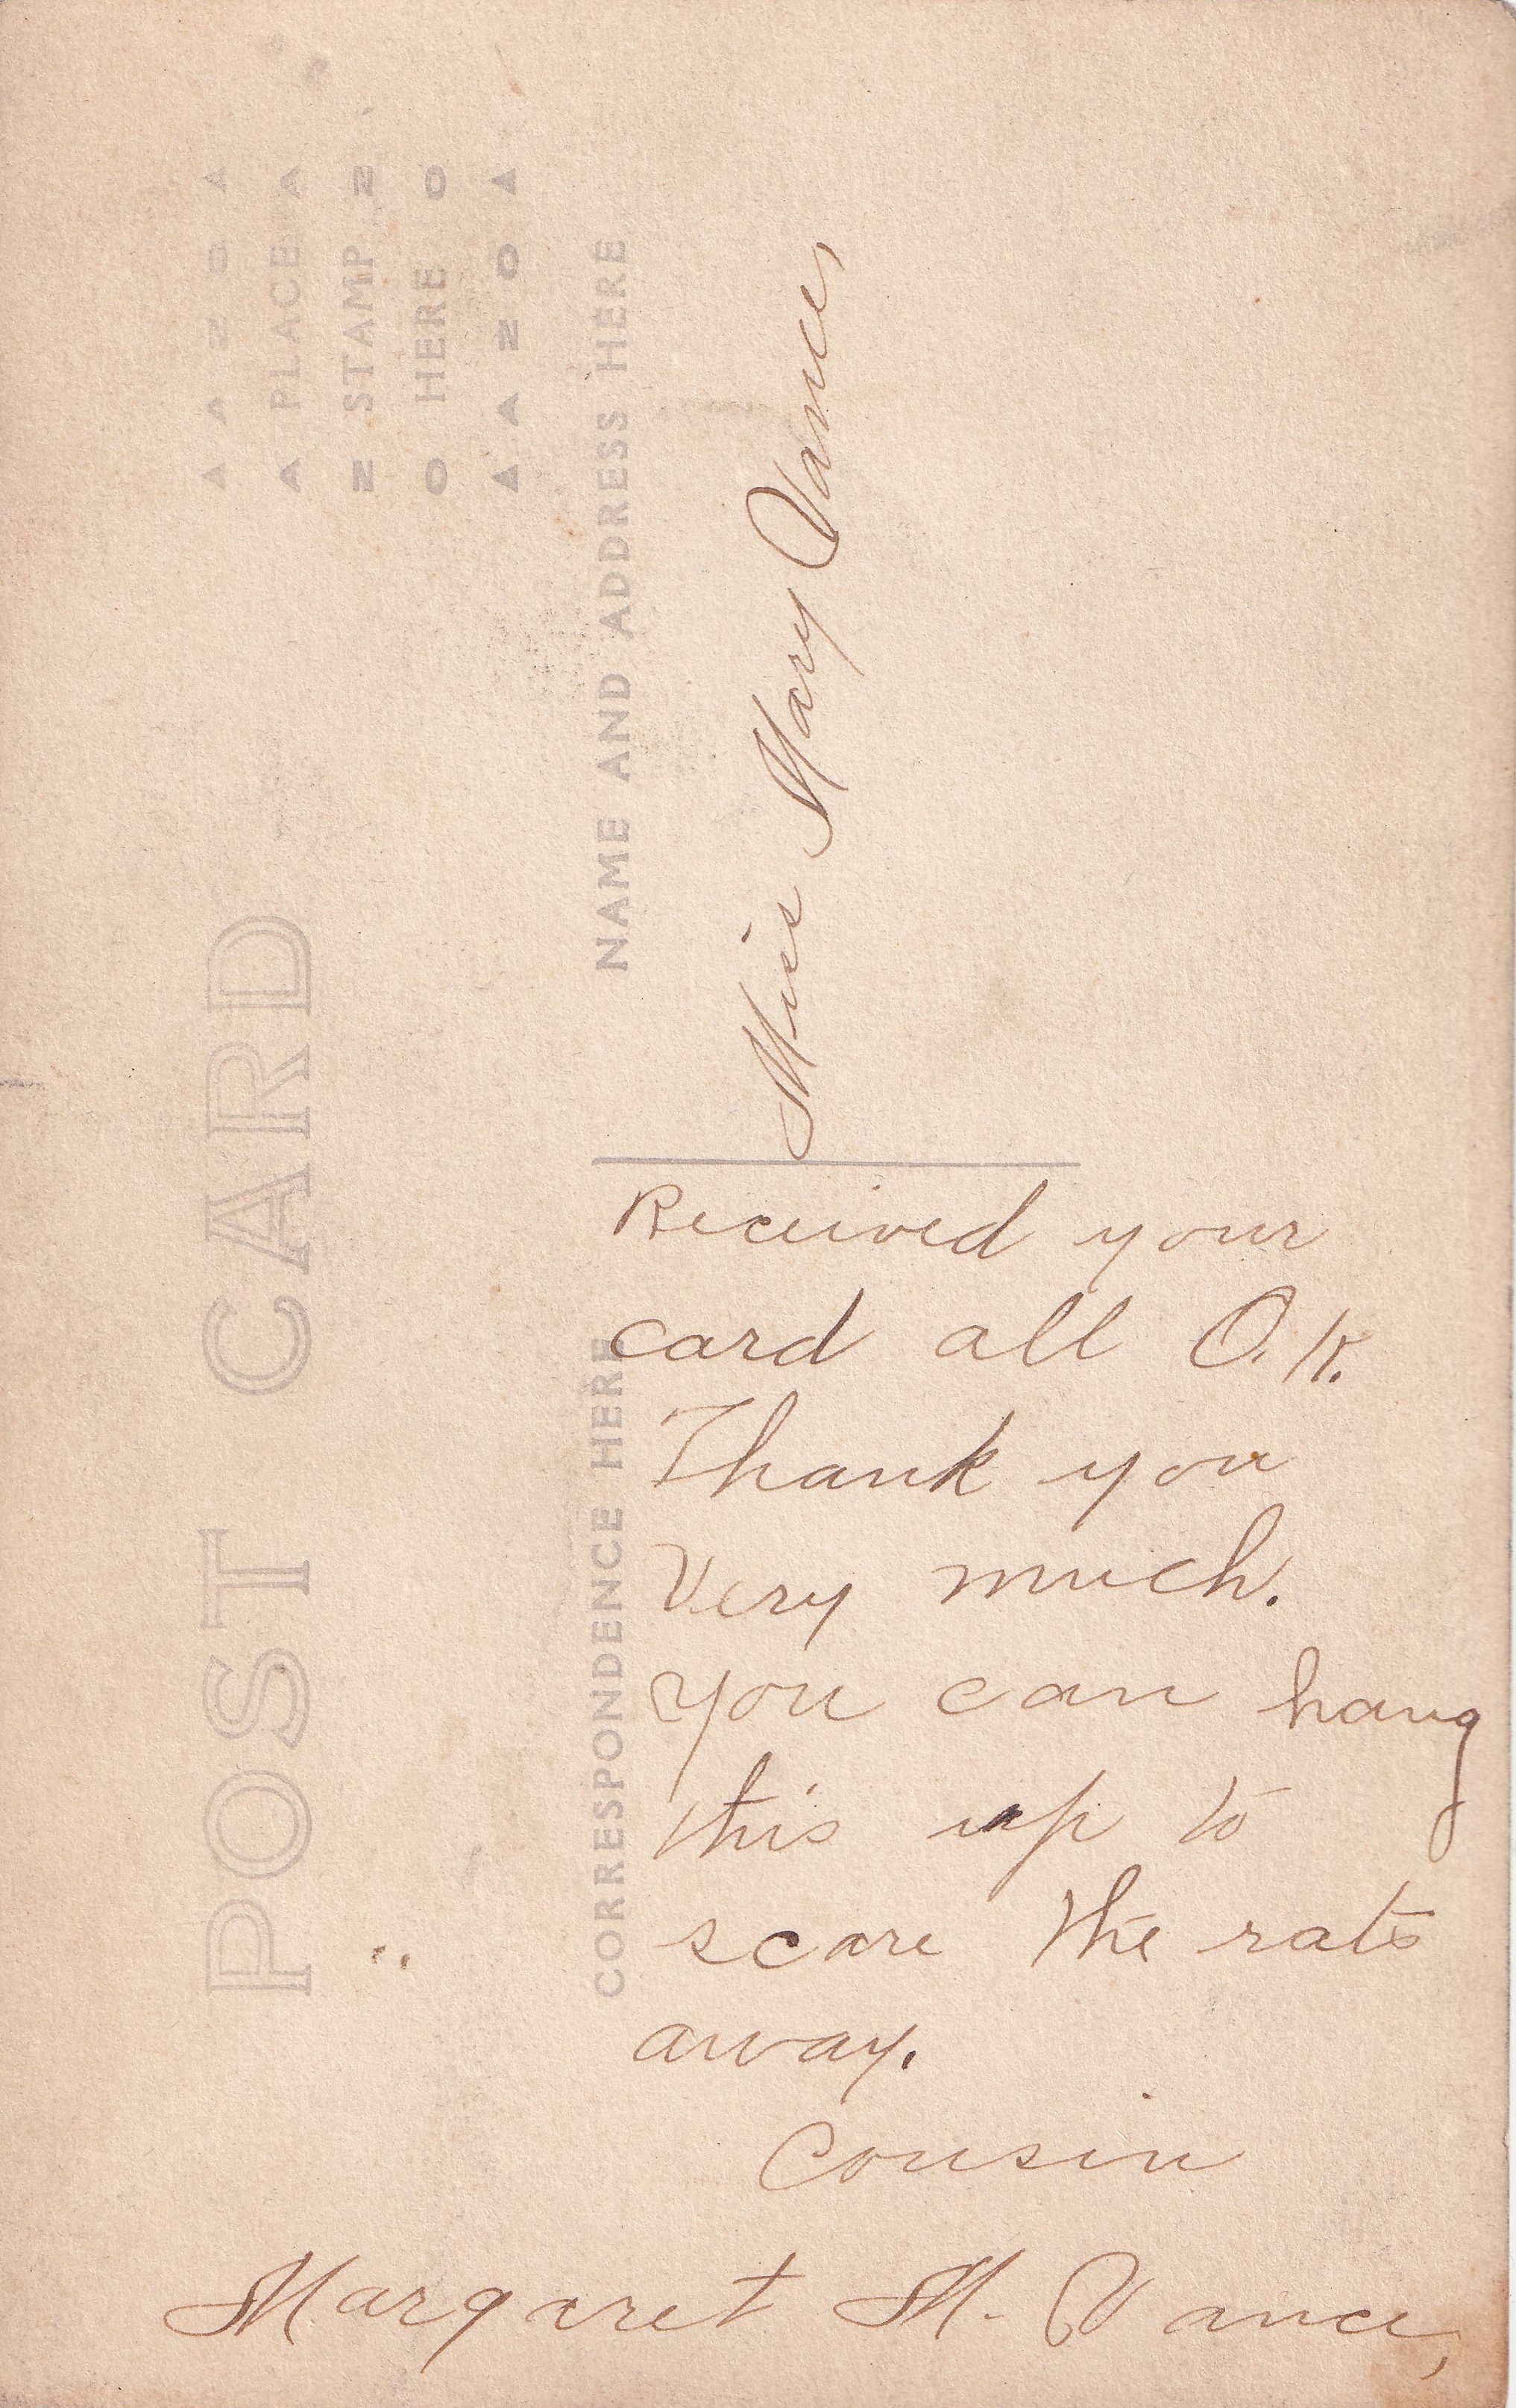 POST CARD
▲ A Z O ▲
A PLACE A
Z STAMP Z
O HERE O
▲ A Z O ▲
CORRESPONDENCE HERE
NAME AND ADDRESS HERE
Miss Mary Vance,
Received your
card all O.K.
Thank you
Very much.
You can hang
this up to
scare the rats
away.
Cousin
Margaret M. Vance,